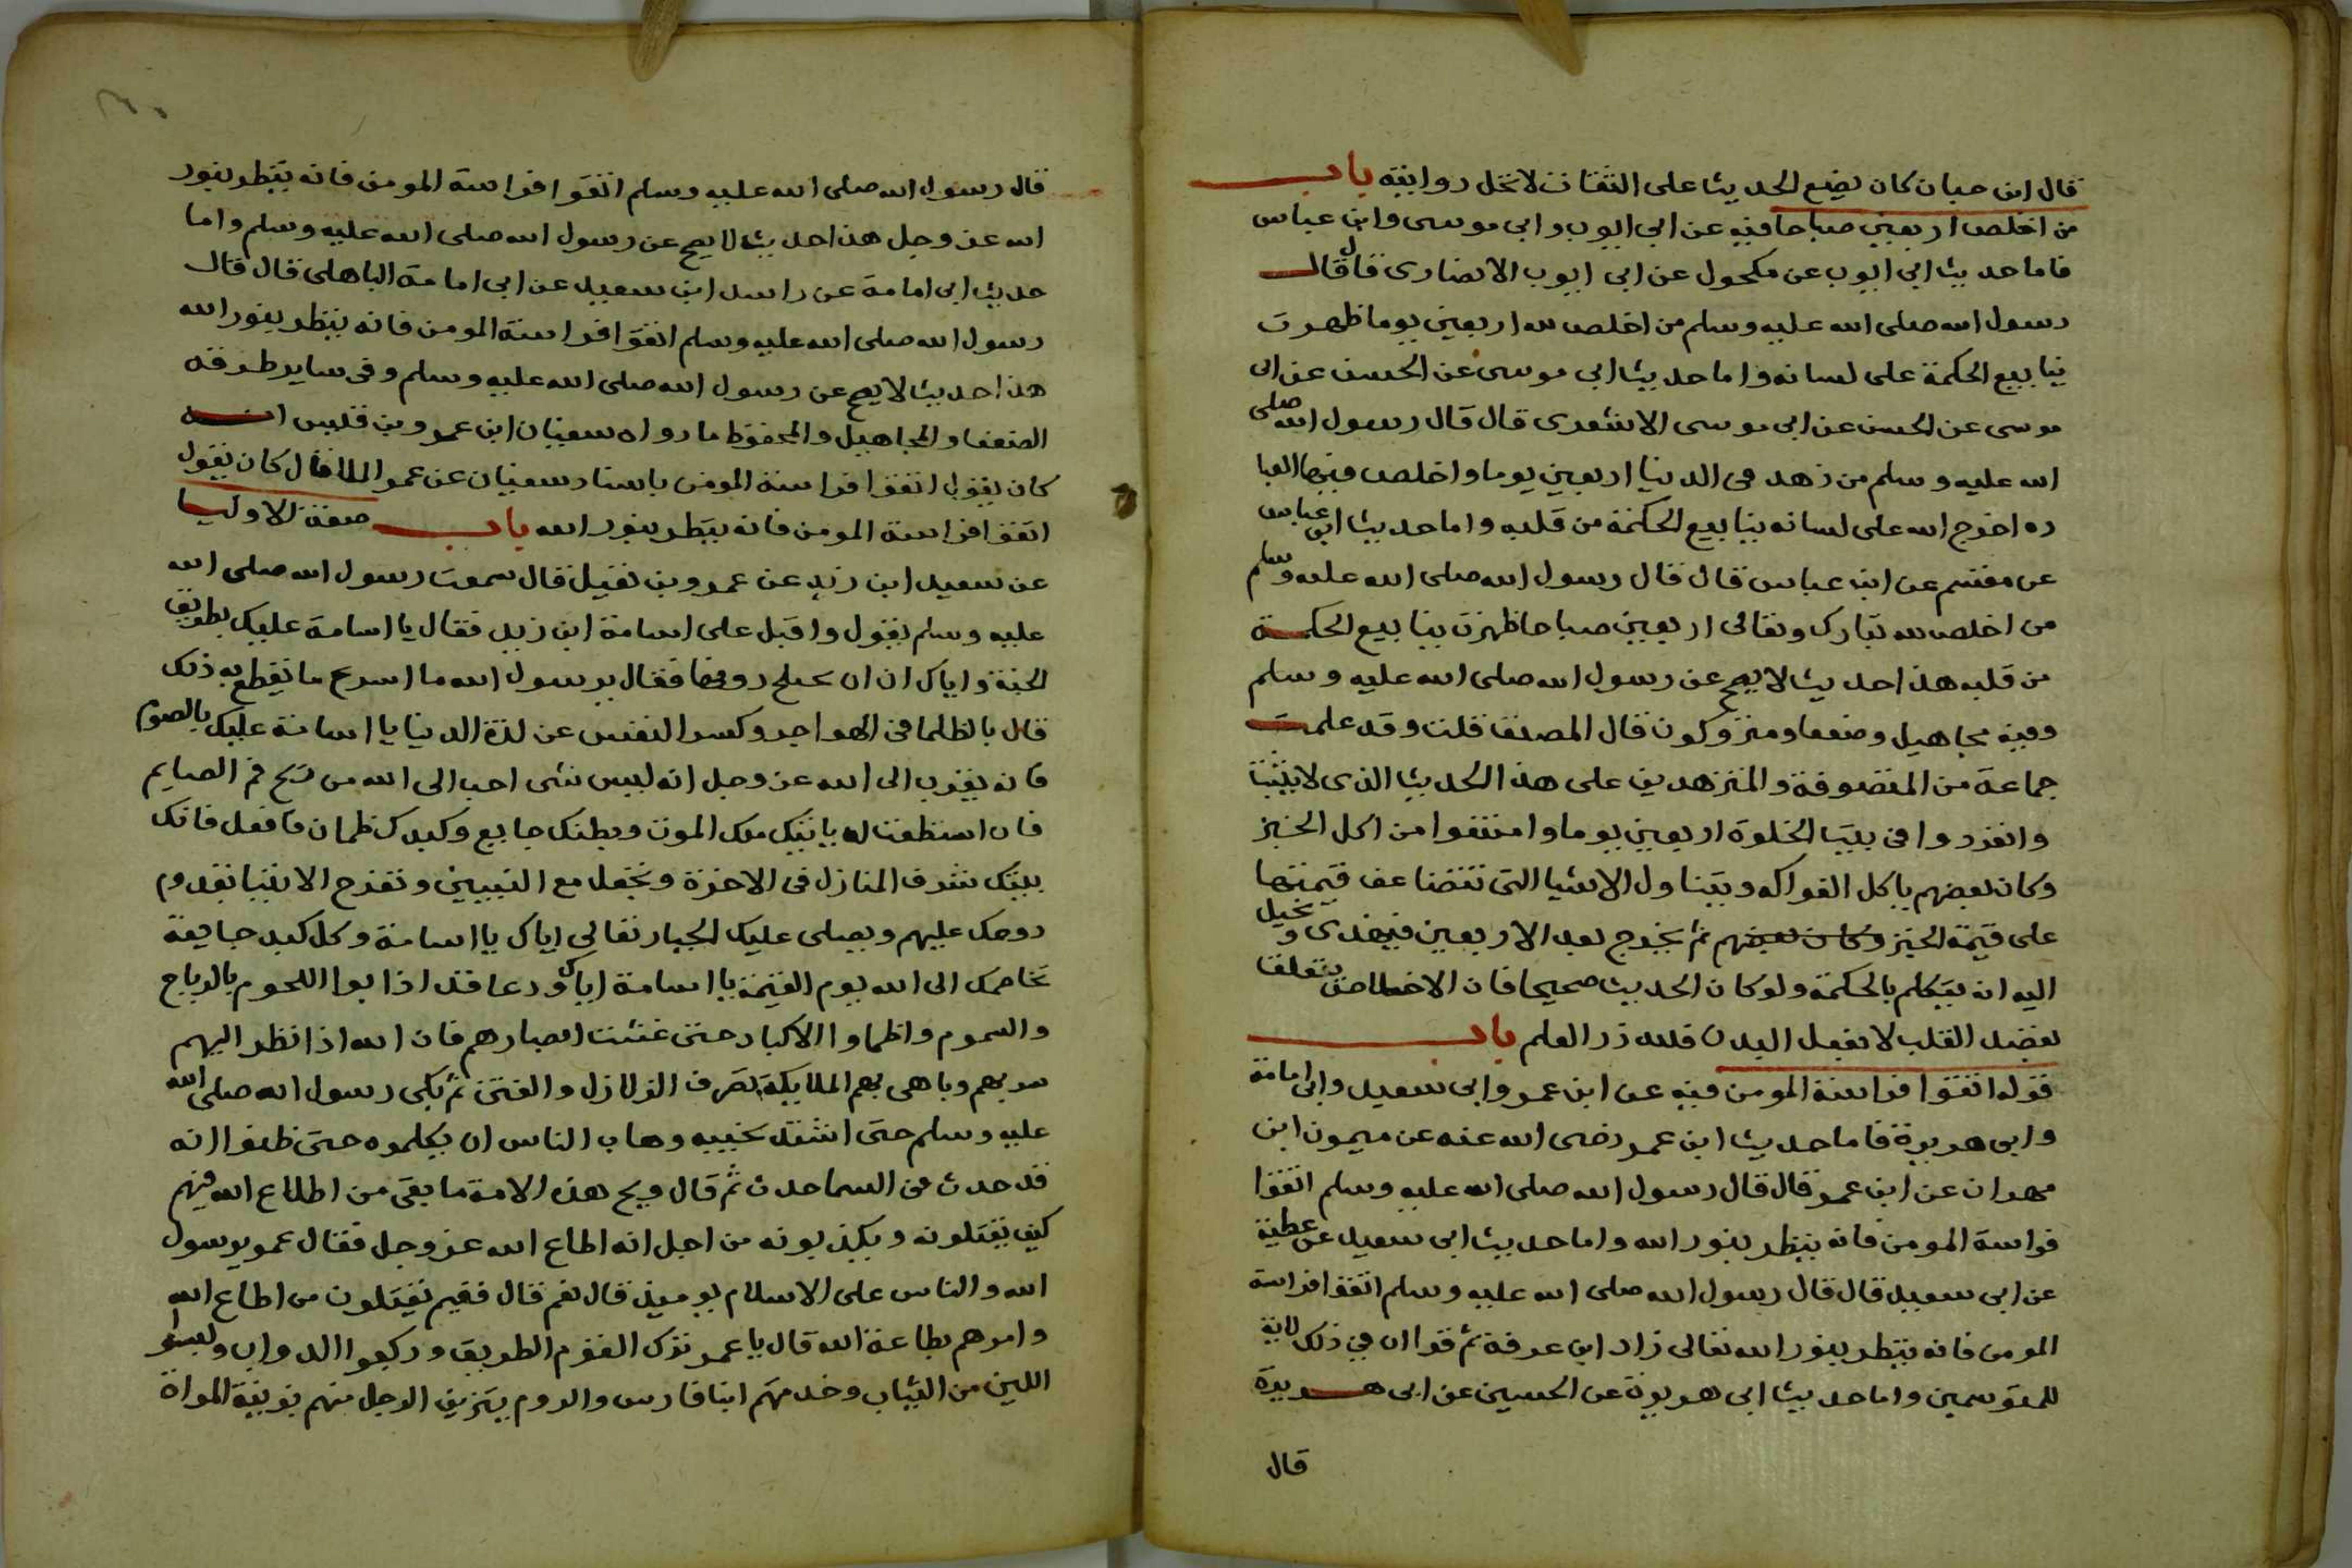 قال ابن حبان كان يضع الحديث على الثقات لا تحل روايته باب
من اخلص اربعين صباحا فيه عن ابى ايوب وابى موسى وابن عباس
فاما حديث ابى ايوب عن مكحول عن ابى ايوب الانصارى قال قال
رسول الله صلى الله عليه وسلم من اخلص لله اربعين يوما ظهرت
ينابيع الحكمة على لسانه واما حديث ابى موسى عن الحسن عن ابى
موسى عن الحسن عن ابى موسى الاشعرى قال قال رسول الله صلى
الله عليه وسلم من زهد فى الدنيا اربعين يوما واخلص فيها العبا
ده اخرج الله على لسانه ينابيع الحكمة من قلبه واما حديث ابن عباس
عن مقسم عن ابن عباس قال قال رسول الله صلى الله عليه وسلم
من اخلص لله تبارك وتعالى اربعين صباحا ظهرت ينابيع الحكمة
من قلبه هذا حديث لا يصح عن رسول الله صلى الله عليه وسلم
وفيه مجاهيل وضعفا ومتروكون قال المصنف قلت وقد علمت
جماعة من المتصوفة والمتزهدين على هذا الحديث الذى لا يثبت
وانفردوا فى بيت الخلوة اربعين يوما وامتنعوا من اكل الخبز
وكان بعضهم ياكل الفواكه ويتناول الاشيا التى تتضاعف قيمتها
على قيمة الخبز وكان بعضهم ثم يخرج بعد الاربعين فيهذى ويخيل
اليه انه يتكلم بالحكمة ولو كان الحديث صحيحا فان الاخلاص يتعلق
بفضل القلب لا بفعل البدن فلله در العلم باب
قوله اتقوا فراسة المومن فيه عن ابن عمر وابى سعيد وابى امامة
وابى هريرة فاما حديث ابن عمر رضى الله عنه عن ميمون ابن
مهران عن ابن عمر قال قال رسول الله صلى الله عليه وسلم اتقوا
فراسة المومن فانه ينظر بنور الله واما حديث ابى سعيد عن عطية
عن ابى سعيد قال قال رسول الله صلى الله عليه وسلم اتقوا فراسة
المومن فانه ينظر بنور الله تعالى زاد ابن عرفة ثم قرا ان فى ذلك لاية
للمتوسمين واما حديث ابى هريرة عن الحسين عن ابى هريرة
قال
قال رسول الله صلى الله عليه وسلم اتقوا فراسة المومن فانه ينظر بنور
الله عز وجل هذا حديث لا يصح عن رسول الله صلى الله عليه وسلم واما
حديث ابى امامة عن راسد ابن سعيد عن ابى امامة الباهلى قال قال
رسول الله صلى الله عليه وسلم اتقوا فراسة المومن فانه ينظر بنور الله
هذا حديث لا يصح عن رسول الله صلى الله عليه وسلم وفى ساير طرقه
الضعفا والمجاهيل والمحفوظ ما رواه سفيان ابن عمرو بن قليس انه
كان يقول اتقوا فراسة المومن باسناد سفيان عن عمر الملا قال كان يقول
اتقوا فراسة المومن فانه ينظر بنور الله باب صفة الاوليا
عن سعيد ابن زيد عن عمرو بن نفيل قال سمعت رسول الله صلى الله
عليه وسلم يقول واقبل على اسامة ابن زيد فقال يا اسامة عليك بطريق
الجنة واياك ان دونها فقال يرسول الله ما اسرع ما يقطع به ذلك
قال بالظما فى الهواجر وكسر النفس عن لذة الدنيا يا اسامة عليك بالصوم
فانه يقرب الى الله عز وجل انه ليس شى احب الى الله من ريح فم الصايم
فان استطعت ان ياتيك ملك الموت وبطنك جايع وكبدك ظمان فافعل فانك
بتلك شرف المنازل فى الاخرة وتحل مع النبيين وتفرح الانبيا بقدوم
روحك عليهم ويصلى عليك الجبار تعالى اياك يا اسامة وكل كبد جايعة
تخاصمك الى الله يوم القيمة يا اسامة اياك ودعا قد اذابوا اللحوم بالرياح
والسموم واظماوا الاكباد حتى غشت ابصارهم فان الله اذا نظر اليهم
سر بهم وباهى بهم الملايكة بصرف الزلازل والفتن ثم بكى رسول الله صلى الله
عليه وسلم حتى اشتد نحيبه وهاب الناس ان يكلموه حتى ظنوا انه
قد حدث من السما حدث ثم قال ويح هذه الامة ما يلقى من اطاع الله فيهم
كيف يقتلونه ويكذبونه من اجل انه اطاع الله عز وجل فقال عمر يرسول
الله والناس على الاسلام يوميذ قال نعم قال ففيم يقتلون من اطاع الله
وامرهم بطاعة الله قال يا عمر ترك القوم الطريق وركبوا الدواب ولبسوا
اللين من الثياب وخدمتهم ابنا فارس والروم يتزين الرجل منهم بزينة المراة